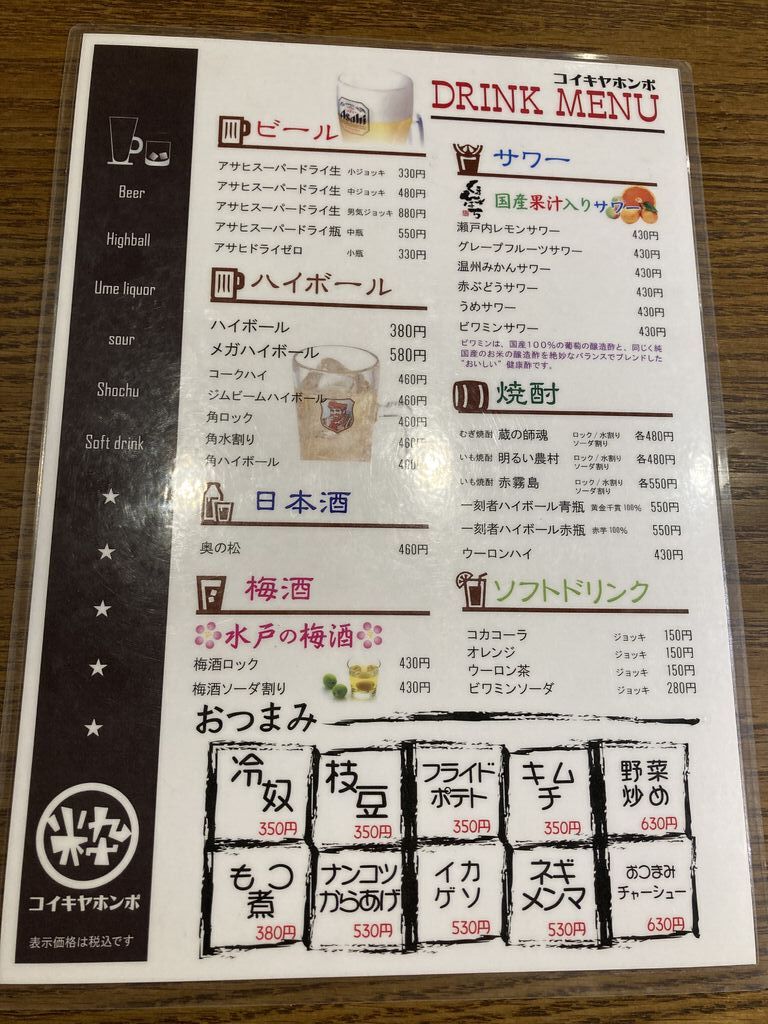 コイキヤホンポ
DRINK MENU
Beer
Highball
Ume liquor
sour
Shochu
Soft drink
粋
コイキヤホンポ
表示価格は税込です
ビール
Asahi
アサヒスーパードライ生 小ジョッキ 330円
アサヒスーパードライ生 中ジョッキ 480円
アサヒスーパードライ生 男気ジョッキ 880円
アサヒスーパードライ瓶 中瓶 550円
アサヒドライゼロ 小瓶 330円
ハイボール
ハイボール 380円
メガハイボール 580円
コークハイ 460円
ジムビームハイボール 460円
角ロック 460円
角水割り 460円
角ハイボール
日本酒
奥の松 460円
梅酒
水戸の梅酒
梅酒ロック 430円
梅酒ソーダ割り 430円
サワー
国産果汁入りサワー
瀬戸内レモンサワー 430円
グレープフルーツサワー 430円
温州みかんサワー 430円
赤ぶどうサワー 430円
うめサワー 430円
ビワミンサワー 430円
ビワミンは、国産100%の葡萄の醸造酢と、同じく純
国産のお米の醸造酢を絶妙なバランスでブレンドした
"おいしい" 健康酢です。
焼酎
むぎ焼酎 蔵の師魂 ロック / 水割り ソーダ割り 各480円
いも焼酎 明るい農村 ロック / 水割り ソーダ割り 各480円
いも焼酎 赤霧島 ロック / 水割り ソーダ割り 各550円
一刻者ハイボール青瓶 黄金千貫 100% 550円
一刻者ハイボール赤瓶 赤芋 100% 550円
ウーロンハイ 430円
ソフトドリンク
コカコーラ ジョッキ 150円
オレンジ ジョッキ 150円
ウーロン茶 ジョッキ 150円
ビワミンソーダ ジョッキ 280円
おつまみ
冷奴 350円
枝豆 350円
フライドポテト 350円
キムチ 350円
野菜炒め 630円
もつ煮 380円
ナンコツからあげ 530円
イカゲソ 530円
ネギメンマ 530円
おつまみチャーシュー 630円